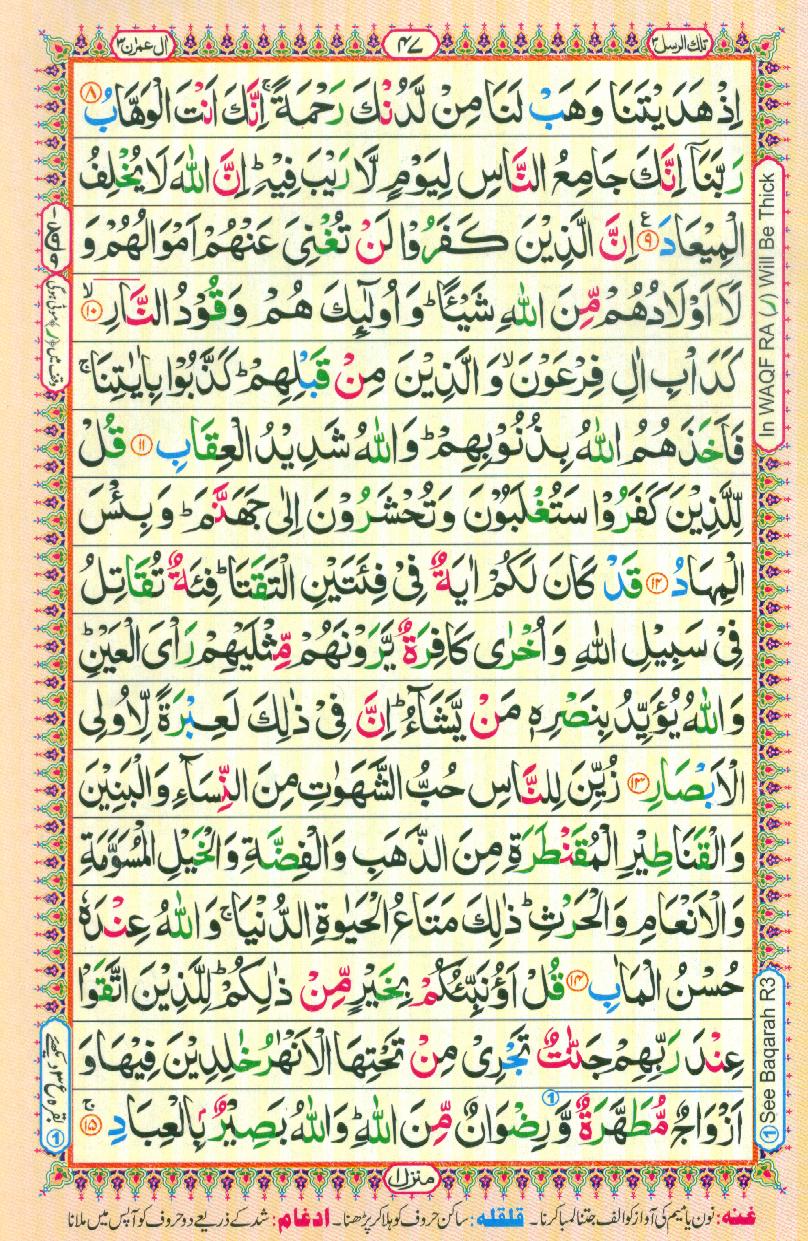 تلك الرسل ٣
٤٧
اٰل عمرٰن ٣
اِذْ هَدَيْتَنَا وَهَبْ لَنَا مِنْ لَّدُنْكَ رَحْمَةً ۚ اِنَّكَ اَنْتَ الْوَهَّابُ ۝٨
رَبَّنَاۤ اِنَّكَ جَامِعُ النَّاسِ لِيَوْمٍ لَّا رَيْبَ فِيْهِ ؕ اِنَّ اللّٰهَ لَا يُخْلِفُ
الْمِيْعَادَ ۝٩ ع اِنَّ الَّذِيْنَ كَفَرُوْا لَنْ تُغْنِىَ عَنْهُمْ اَمْوَالُهُمْ وَ
لَاۤ اَوْلَادُهُمْ مِّنَ اللّٰهِ شَيْـًٔا ؕ وَاُولٰٓئِكَ هُمْ وَقُوْدُ النَّارِ ۝١٠ ۙ
كَدَاْبِ اٰلِ فِرْعَوْنَ ۙ وَالَّذِيْنَ مِنْ قَبْلِهِمْ ؕ كَذَّبُوْا بِاٰيٰتِنَا ۚ
فَاَخَذَهُمُ اللّٰهُ بِذُنُوْبِهِمْ ؕ وَاللّٰهُ شَدِيْدُ الْعِقَابِ ۝١١ قُلْ
لِّلَّذِيْنَ كَفَرُوْا سَتُغْلَبُوْنَ وَتُحْشَرُوْنَ اِلٰى جَهَنَّمَ ؕ وَبِئْسَ
الْمِهَادُ ۝١٢ قَدْ كَانَ لَكُمْ اٰيَةٌ فِىْ فِئَتَيْنِ الْتَقَتَا ؕ فِئَةٌ تُقَاتِلُ
فِىْ سَبِيْلِ اللّٰهِ وَاُخْرٰى كَافِرَةٌ يَّرَوْنَهُمْ مِّثْلَيْهِمْ رَاْىَ الْعَيْنِ ؕ
وَاللّٰهُ يُؤَيِّدُ بِنَصْرِهٖ مَنْ يَّشَآءُ ؕ اِنَّ فِىْ ذٰلِكَ لَعِبْرَةً لِّاُولِى
الْاَبْصَارِ ۝١٣ زُيِّنَ لِلنَّاسِ حُبُّ الشَّهَوٰتِ مِنَ النِّسَآءِ وَالْبَنِيْنَ
وَالْقَنَاطِيْرِ الْمُقَنْطَرَةِ مِنَ الذَّهَبِ وَالْفِضَّةِ وَالْخَيْلِ الْمُسَوَّمَةِ
وَالْاَنْعَامِ وَالْحَرْثِ ؕ ذٰلِكَ مَتَاعُ الْحَيٰوةِ الدُّنْيَا ۚ وَاللّٰهُ عِنْدَهٗ
حُسْنُ الْمَاٰبِ ۝١٤ قُلْ اَؤُنَبِّئُكُمْ بِخَيْرٍ مِّنْ ذٰلِكُمْ ؕ لِلَّذِيْنَ اتَّقَوْا
عِنْدَ رَبِّهِمْ جَنّٰتٌ تَجْرِىْ مِنْ تَحْتِهَا الْاَنْهٰرُ خٰلِدِيْنَ فِيْهَا وَ
اَزْوَاجٌ مُّطَهَّرَةٌ وَّرِضْوَانٌ ① مِّنَ اللّٰهِ ؕ وَاللّٰهُ بَصِيْرٌۢ بِالْعِبَادِ ۝١٥ ۚ
In WAQF RA (ر) Will Be Thick
① See Baqarah R3
منزل ١
غنه: نون یا میم کی آواز کو الف جتنا لمبا کرنا۔ قلقله: ساکن حروف کو ہلا کر پڑھنا۔ ادغام: شد کے ذریعے دو حروف کو آپس میں ملانا